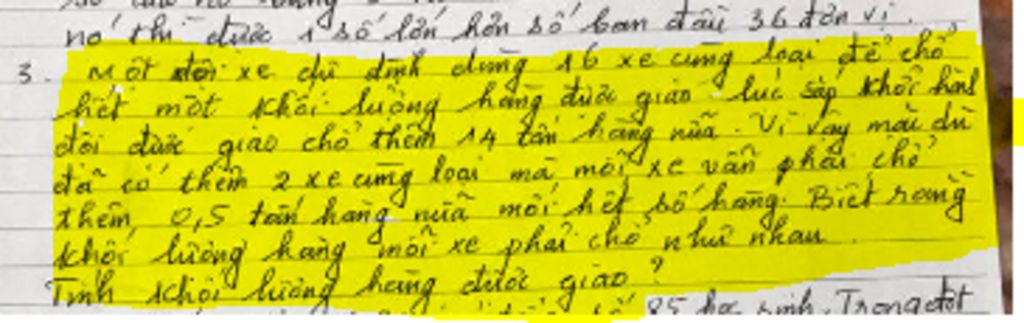 nó thì được 1 số lớn hơn số ban đầu 36 đơn vị.
3. Một đội xe dự định dùng 16 xe cùng loại để chở
hết một khối lượng hàng được giao lúc sắp khởi hành
đội được giao chở thêm 14 tấn hàng nữa. Vì vậy mặc dù
đã có thêm 2 xe cùng loại mà mỗi xe vẫn phải chở
thêm 0,5 tấn hàng nữa mới hết số hàng. Biết rằng
khối lượng hàng mỗi xe phải chở như nhau.
Tính khối lượng hàng được giao?
85 học sinh. Trong đợt